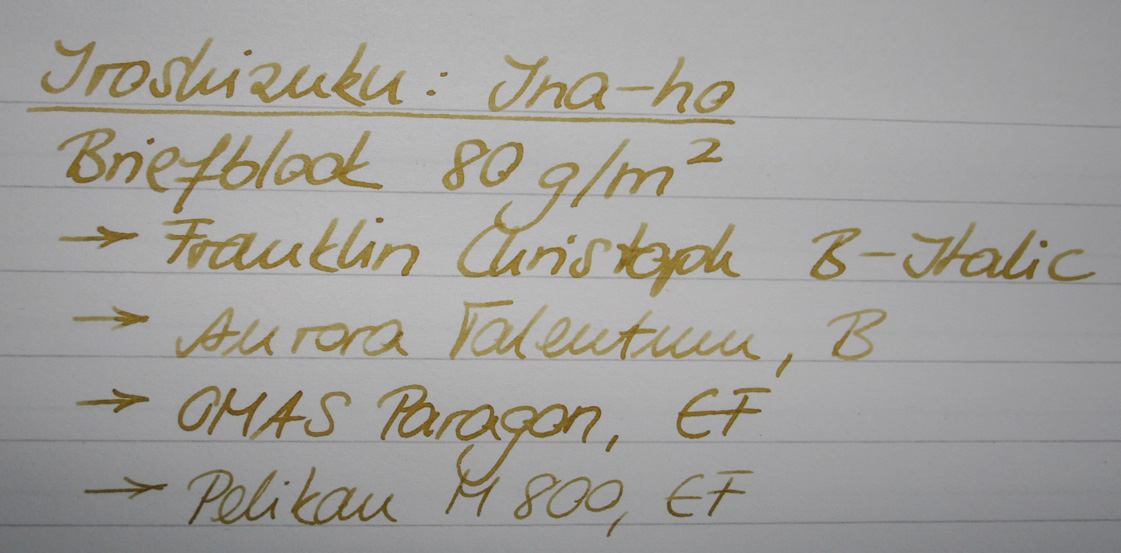 Iroshizuku: Ina-ho
Briefblock 80 g/m²
→ Franklin Christoph B-Italic
→ Aurora Talentum, B
→ OMAS Paragon, EF
→ Pelikan M 800, EF